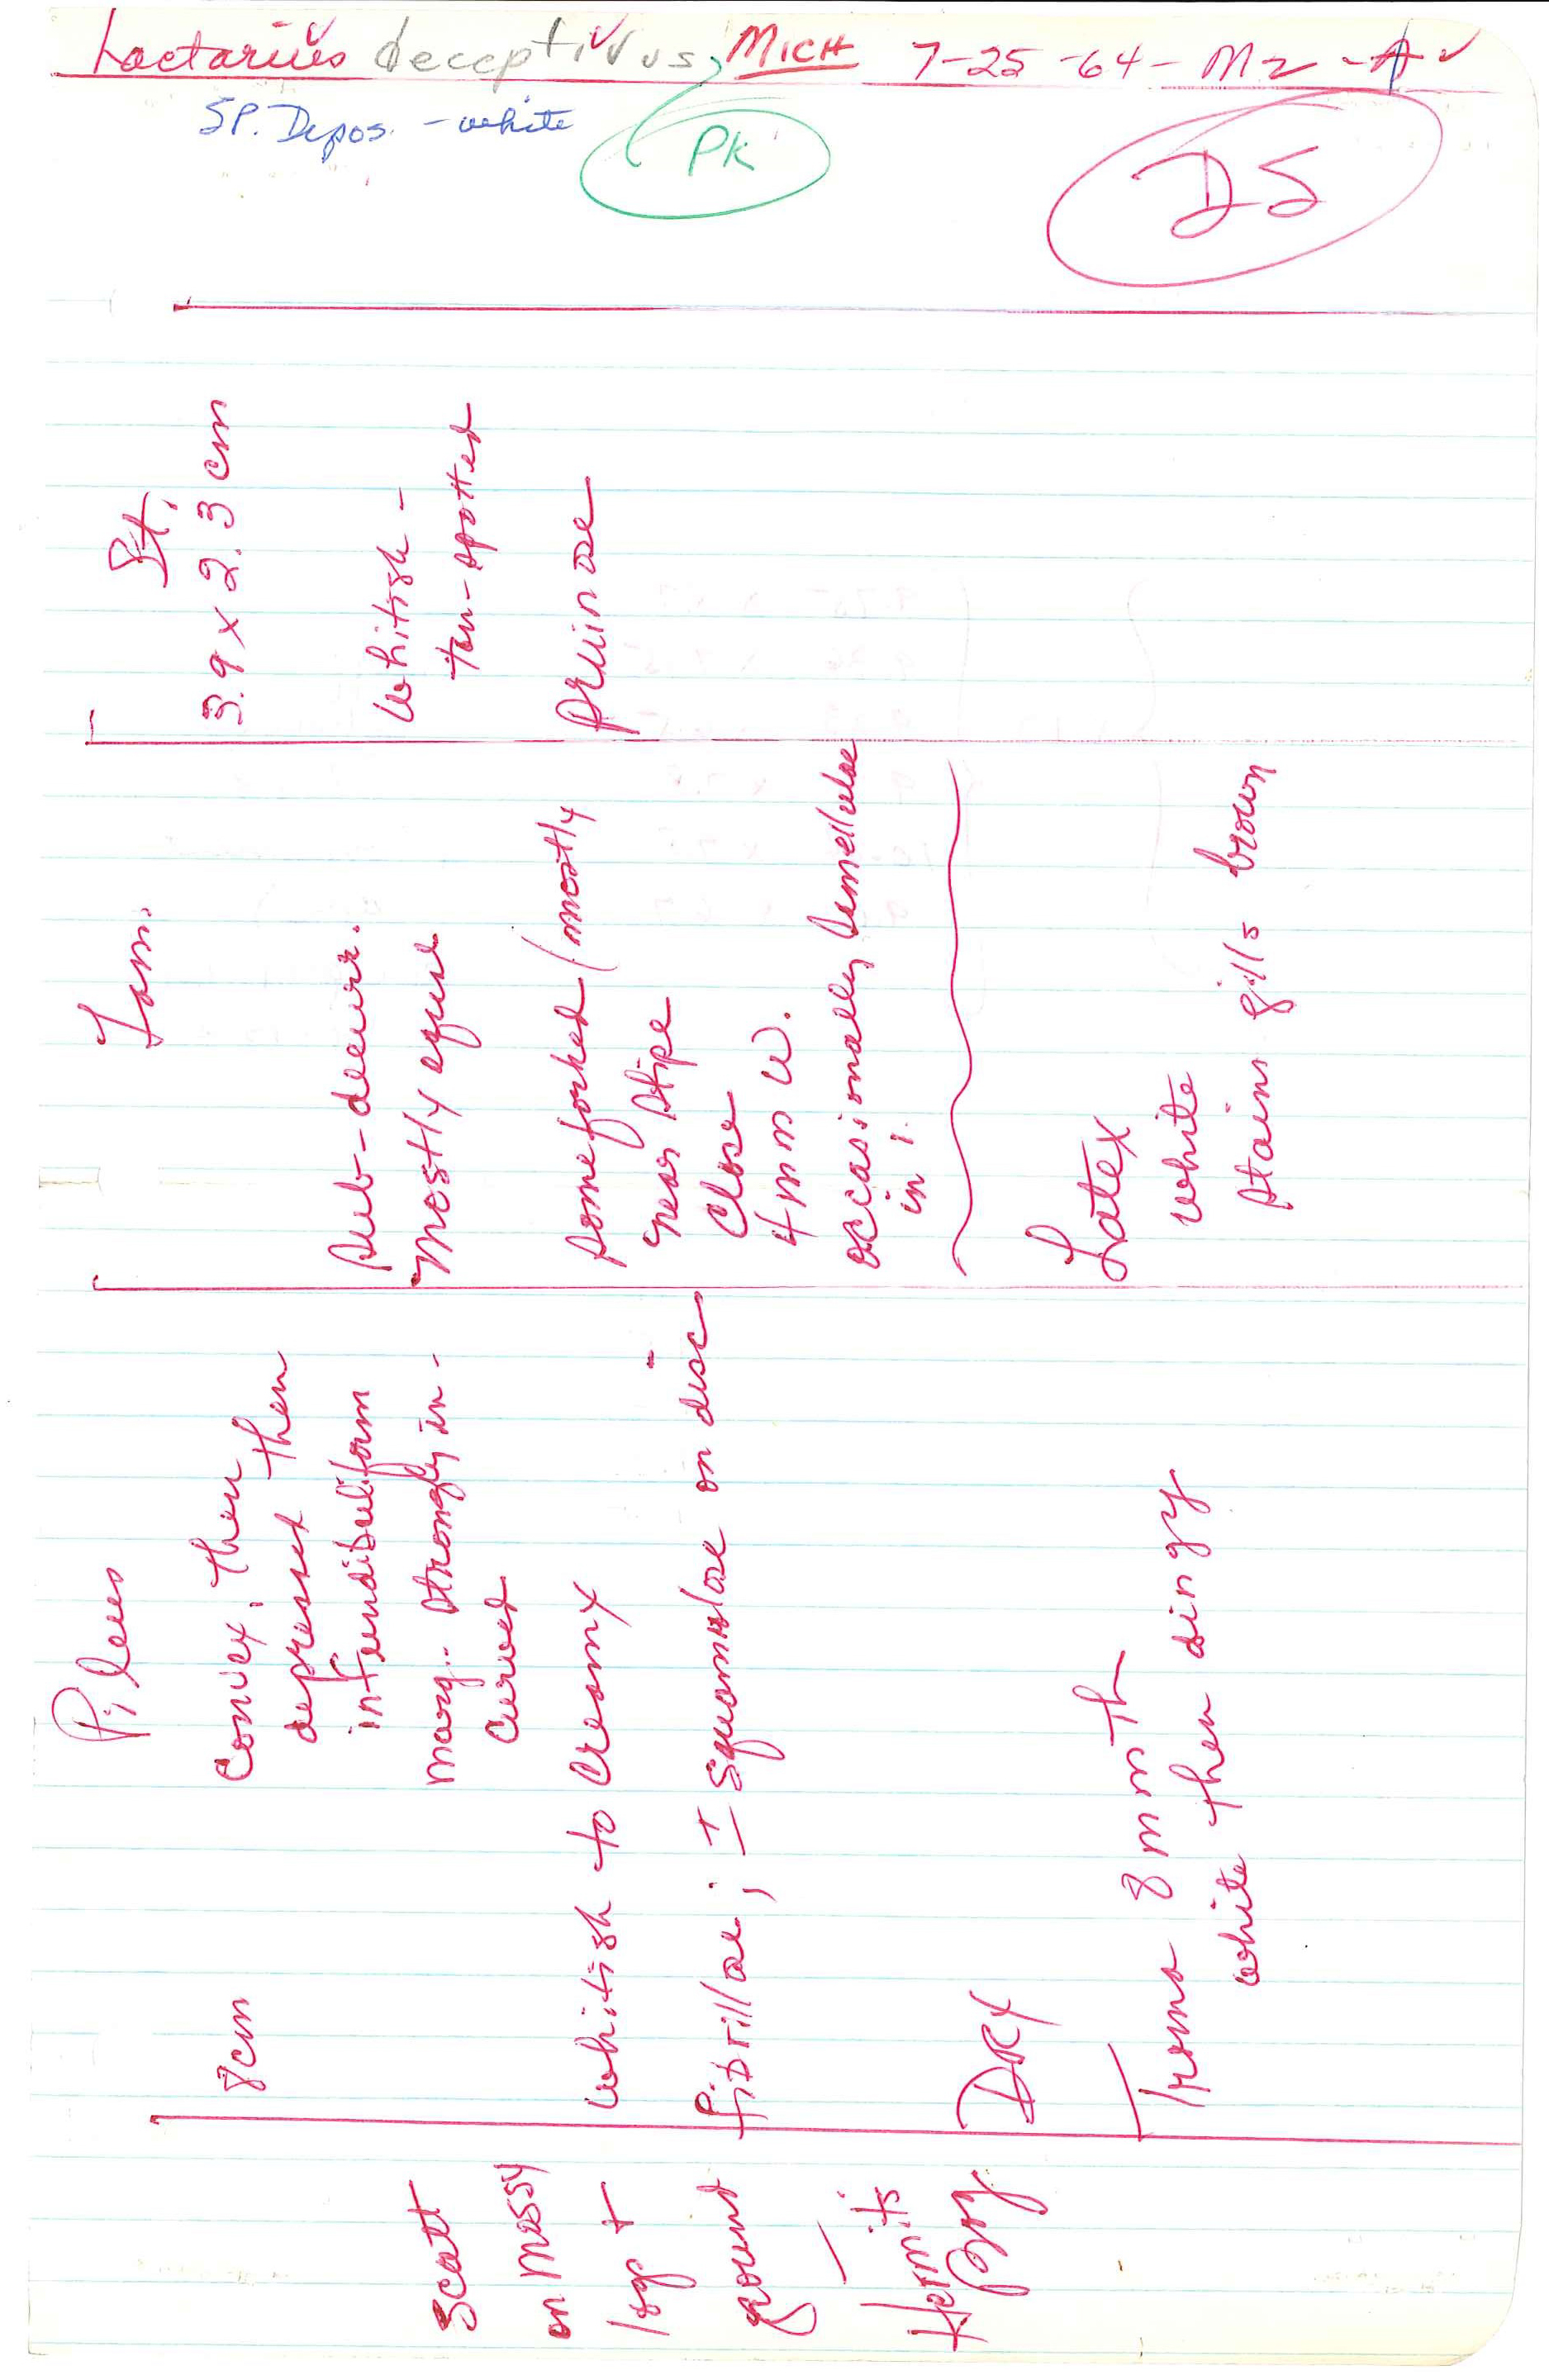 Lactarius deceptivus, MICH 7-25-64- Mz -A
SP. Depos. - white
PK
DS
Scatt
on mossy
log +
ground
—
Hermits
Bog
Pileus
8cm convex, then
depressed then
infundibuliform
marg. strongly in-
curved
whitish to creamy
fibrillose; ± squamulose on disc
DRY
Trama 8 mm th
white then dingy
Lam.
sub-decurr.
Mostly equal
some forked (mostly
near stipe
Close
4 mm w.
occasionally lamellulae
in !.
Latex
white
stains gills brown
St.
3.9 x 2.3 cm
whitish -
tan-spotted
pruinose